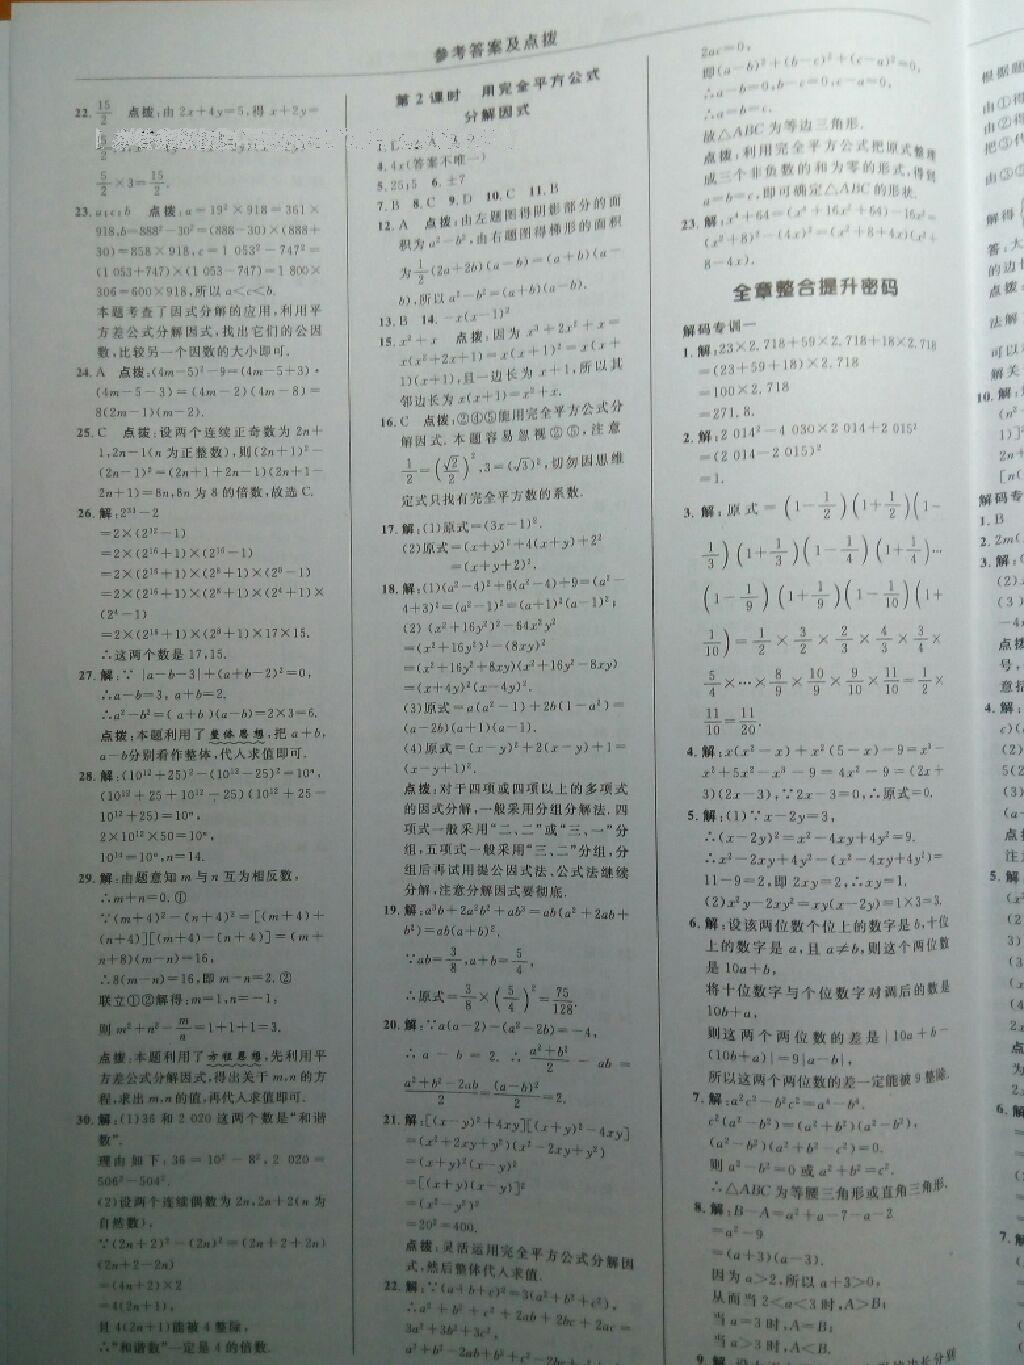 参考答案及点拨
22. 15/2 点拨:由2x+4y=5,得x+2y=
5/2×3=15/2.
23. a;c;b 点拨:a=19²×918=361×
918,b=888²-30²=(888-30)×(888+
30)=858×918,c=1 053²-747²=
(1 053+747)×(1 053-747)=1 800×
306=600×918,所以a<c<b.
本题考查了因式分解的应用,利用平
方差公式分解因式,找出它们的公因
数,比较另一个因数的大小即可.
24. A 点拨:(4m-5)²-9=(4m-5+3)·
(4m-5-3)=(4m-2)(4m-8)=
8(2m-1)(m-2).
25. C 点拨:设两个连续正奇数为2n+
1,2n-1(n为正整数),则(2n+1)²-
(2n-1)²=(2n+1+2n-1)(2n+1-
2n+1)=8n,8n为8的倍数,故选C.
26. 解:2³³-2
=2×(2³²-1)
=2×(2¹⁶+1)×(2¹⁶-1)
=2×(2¹⁶+1)×(2⁸+1)×(2⁸-1)
=2×(2¹⁶+1)×(2⁸+1)×(2⁴+1)×
(2⁴-1)
=2×(2¹⁶+1)×(2⁸+1)×17×15.
∴这两个数是17,15.
27. 解:∵|a-b-3|+(a+b-2)²=0,
∴a-b=3, a+b=2.
∴a²-b²=(a+b)(a-b)=2×3=6.
点拨:本题利用了整体思想,把a+b,
a-b分别看作整体,代入求值即可.
28. 解:(10¹²+25)²-(10¹²-25)²=10ⁿ,
(10¹²+25+10¹²-25)(10¹²+25-
10¹²+25)=10ⁿ,
2×10¹²×50=10ⁿ,
10¹⁴=10ⁿ,n=14.
29. 解:由题意知m与n互为相反数,
∴m+n=0.①
∵(m+4)²-(n+4)²=[(m+4)+
(n+4)][(m+4)-(n+4)]=(m+
n+8)(m-n)=16,
∴8(m-n)=16,即m-n=2.②
联立①②解得:m=1,n=-1,
则m²+n²-m/n=1+1+1=3.
点拨:本题利用了方程思想,先利用平
方差公式分解因式,得出关于m,n的方
程,求出m,n的值,再代入求值即可.
30. 解:(1)36和2 020这两个数是“和谐
数”.
理由如下:36=10²-8²,2 020=
506²-504².
(2)设两个连续偶数为2n,2n+2(n为
自然数),
∵(2n+2)²-(2n)²=(2n+2+2n)
(2n+2-2n)
=(4n+2)×2
=4(2n+1),
且4(2n+1)能被4整除,
∴“和谐数”一定是4的倍数.
第2课时 用完全平方公式
分解因式
4. 4x(答案不唯一)
5. 25;5 6. ±7
7. B 8. C 9. D 10. C 11. B
12. A 点拨:由左题图得阴影部分的面
积为a²-b²,由右题图得梯形的面积
为1/2(2a+2b)(a-b)=(a+b)(a-
b),所以a²-b²=(a+b)(a-b).
13. B 14. -x(x-1)²
15. x²+x 点拨:因为x³+2x²+x=
x(x²+2x+1)=x(x+1)²=x(x+
1)(x+1),且一边长为x+1,所以其
邻边长为x(x+1)=x²+x.
16. C 点拨:②④⑤能用完全平方公式分
解因式.本题容易忽视②⑤,注意
1/2=(√2/2)²,3=(√3)²,切勿因思维
定式只找有完全平方数的系数.
17. 解:(1)原式=(3x-1)².
(2)原式=(x+y)²+4(x+y)+2²
=(x+y+2)².
18. 解:(1)(a²-4)²+6(a²-4)+9=(a²-
4+3)²=(a²-1)²=(a+1)²(a-1)²;
(2)(x²+16y²)²-64x²y²
=(x²+16y²)²-(8xy)²
=(x²+16y²+8xy)(x²+16y²-8xy)
=(x+4y)²(x-4y)².
(3)原式=a(a²-1)+2b(1-a²)=
(a-2b)(a+1)(a-1).
(4)原式=(x-y)²+2(x-y)+1=
(x-y+1)².
点拨:对于四项或四项以上的多项式
的因式分解,一般采用分组分解法.四
项式一般采用“二、二”或“三、一”分
组,五项式一般采用“三、二”分组,分
组后再试用提公因式法、公式法继续
分解,注意分解因式要彻底.
19. 解:a³b+2a²b²+ab³=ab(a²+2ab+
b²)=ab(a+b)².
∵ab=3/8,a+b=5/4,
∴原式=3/8×(5/4)²=75/128.
20. 解:∵a(a-2)-(a²-2b)=-4,
∴a-b=2.∴(a²+b²)/2-ab=
(a²+b²-2ab)/2=(a-b)²/2=2.
21. 解:[(x-y)²+4xy][(x+y)²-4xy]
=(x²+2xy+y²)(x²-2xy+y²)
=(x+y)²(x-y)²
=[(x+y)(x-y)]²
=(x²-y²)²
=20²=400.
点拨:灵活运用完全平方公式分解因
式,然后整体代入求值.
22. 解:∵(a+b+c)²=3(a²+b²+c²),
∴a²+b²+c²+2ab+2bc+2ac=
3a²+3b²+3c²,
2ac=0,
即(a-b)²+(b-c)²+(c-a)²=0.
∴a-b=0,b-c=0,c-a=0,
∴a=b=c.
故△ABC为等边三角形.
点拨:利用完全平方公式把原式整理
成三个非负数的和为零的形式,得到
a=b=c,即可确定△ABC的形状.
23. 解:x⁴+64=(x⁴+16x²+64)-16x²=
(x²+8)²-(4x)²=(x²+8+4x)(x²+
8-4x).
全章整合提升密码
解码专训一
1. 解:23×2.718+59×2.718+18×2.718
=(23+59+18)×2.718
=100×2.718
=271.8.
2. 解:2 014²-4 030×2 014+2 015²
=(2 014-2 015)²
=1.
3. 解:原式=(1-1/2)(1+1/2)(1-
1/3)(1+1/3)(1-1/4)(1+1/4)…
(1-1/9)(1+1/9)(1-1/10)(1+
1/10)=1/2×3/2×2/3×4/3×3/4×
5/4×…×8/9×10/9×9/10×11/10=1/2×
11/10=11/20.
4. 解:x(x²-x)+x²(5-x)-9=x³-
x²+5x²-x³-9=4x²-9=(2x+
3)(2x-3),∵2x-3=0,∴原式=0.
5. 解:(1)∵x-2y=3,
∴(x-2y)²=x²-4xy+4y²=9.
∴x²-2xy+4y²-(x²-4xy+4y²)=
11-9=2,即2xy=2,∴xy=1.
(2)x²y-2xy²=xy(x-2y)=1×3=3.
6. 解:设该两位数个位上的数字是b,十位
上的数字是a,且a≠b,则这个两位数
是10a+b,
将十位数字与个位数字对调后的数是
10b+a,
则这两个两位数的差是|10a+b-
(10b+a)|=9|a-b|,
所以这两个两位数的差一定能被9整除.
7. 解:a²c²-b²c²=a⁴-b⁴.
c²(a²-b²)=(a²+b²)(a²-b²),
(a²-b²)(a²+b²-c²)=0.
则a²-b²=0或a²+b²=c².
∴△ABC为等腰三角形或直角三角形.
8. 解:B-A=a²+a-7-a-2
=a²-9
=(a+3)(a-3).
因为a>2,所以a+3>0,
从而当2<a<3时,A>B;
当a=3时,A=B;
当a>3时,A<B.